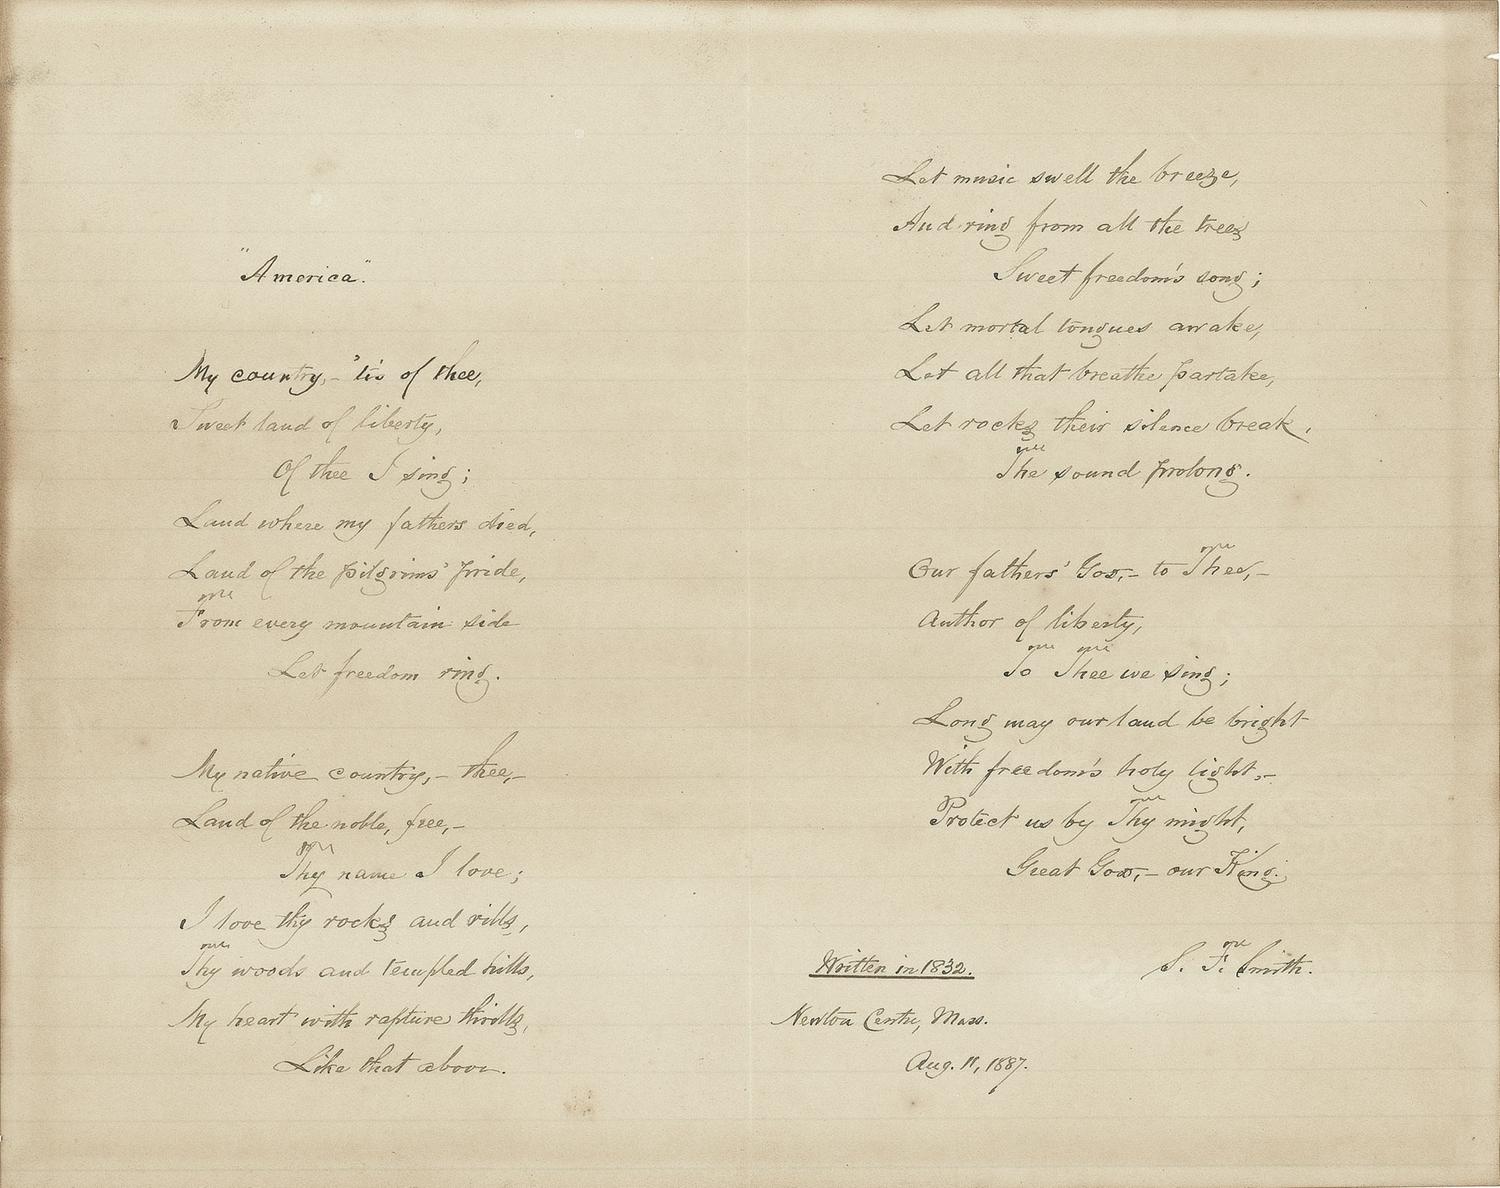 "America".
My country,- 'tis of thee,
Sweet land of liberty,
Of thee I sing;
Land where my fathers died,
Land of the pilgrims' pride,
From every mountain side
Let freedom ring.
My native country,- thee,-
Land of the noble, free,-
Thy name I love;
I love thy rocks and rills,
Thy woods and templed hills,
My heart with rapture thrills,
Like that above.
Let music swell the breeze,
And ring from all the trees
Sweet freedom's song;
Let mortal tongues awake,
Let all that breathe partake,
Let rocks their silence break,
The sound prolong.
Our fathers' God,- to Thee,-
Author of liberty,
To Thee we sing;
Long may our land be bright
With freedom's holy light,-
Protect us by Thy might,
Great God,- our King.
Written in 1832.
S. F. Smith.
Newton Centre, Mass.
Aug. 11, 1887.